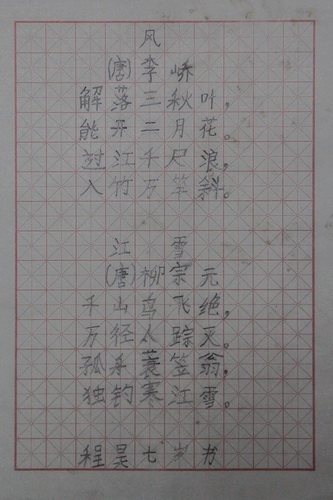 风
(唐)李峤
解落三秋叶，
能开二月花。
过江千尺浪，
入竹万竿斜。
江雪
(唐)柳宗元
千山鸟飞绝，
万径人踪灭。
孤舟蓑笠翁，
独钓寒江雪。
程昊七岁书